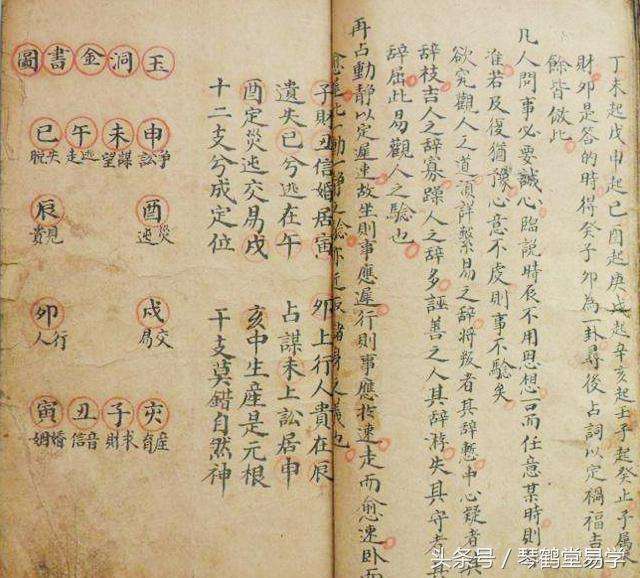 丁未起戊申起己酉起庚戌起辛亥起壬子起癸止子屬
財卯是答的時得癸子卯為一卦尋後占詞以定禍福吉
餘皆倣此
凡人問事必要誠心臨說時辰不用思想言而任意某時則
准若反復猶豫心意不處則事不驗矣
欲究觀人之道須詳繫易之辭將叛者其辭慙中心疑者其
辭枝吉人之辭寡躁人之辭多誣善之人其辭游失其守者其
辭屈此易觀人之驗也
再占動靜以定遲速故坐則事應遲行則事應於速走而愈速臥而
愈遲此一動一靜之驗亦近取諸身之義也
子財丑信婚居寅 卯上行人貴在辰
遺失巳兮逃在午 占謀未上訟居申
酉定災迍交易戌 亥中生產是元根
十二支兮成定位 干支莫錯自然神
玉洞金書圖
申 未 午 巳
爭訟 謀望 逃走 失脫
酉 辰
災迍 見貴
戌 卯
交易 行人
亥 子 丑 寅
產育 求財 音信 婚姻
头条号／琴鹤堂易学